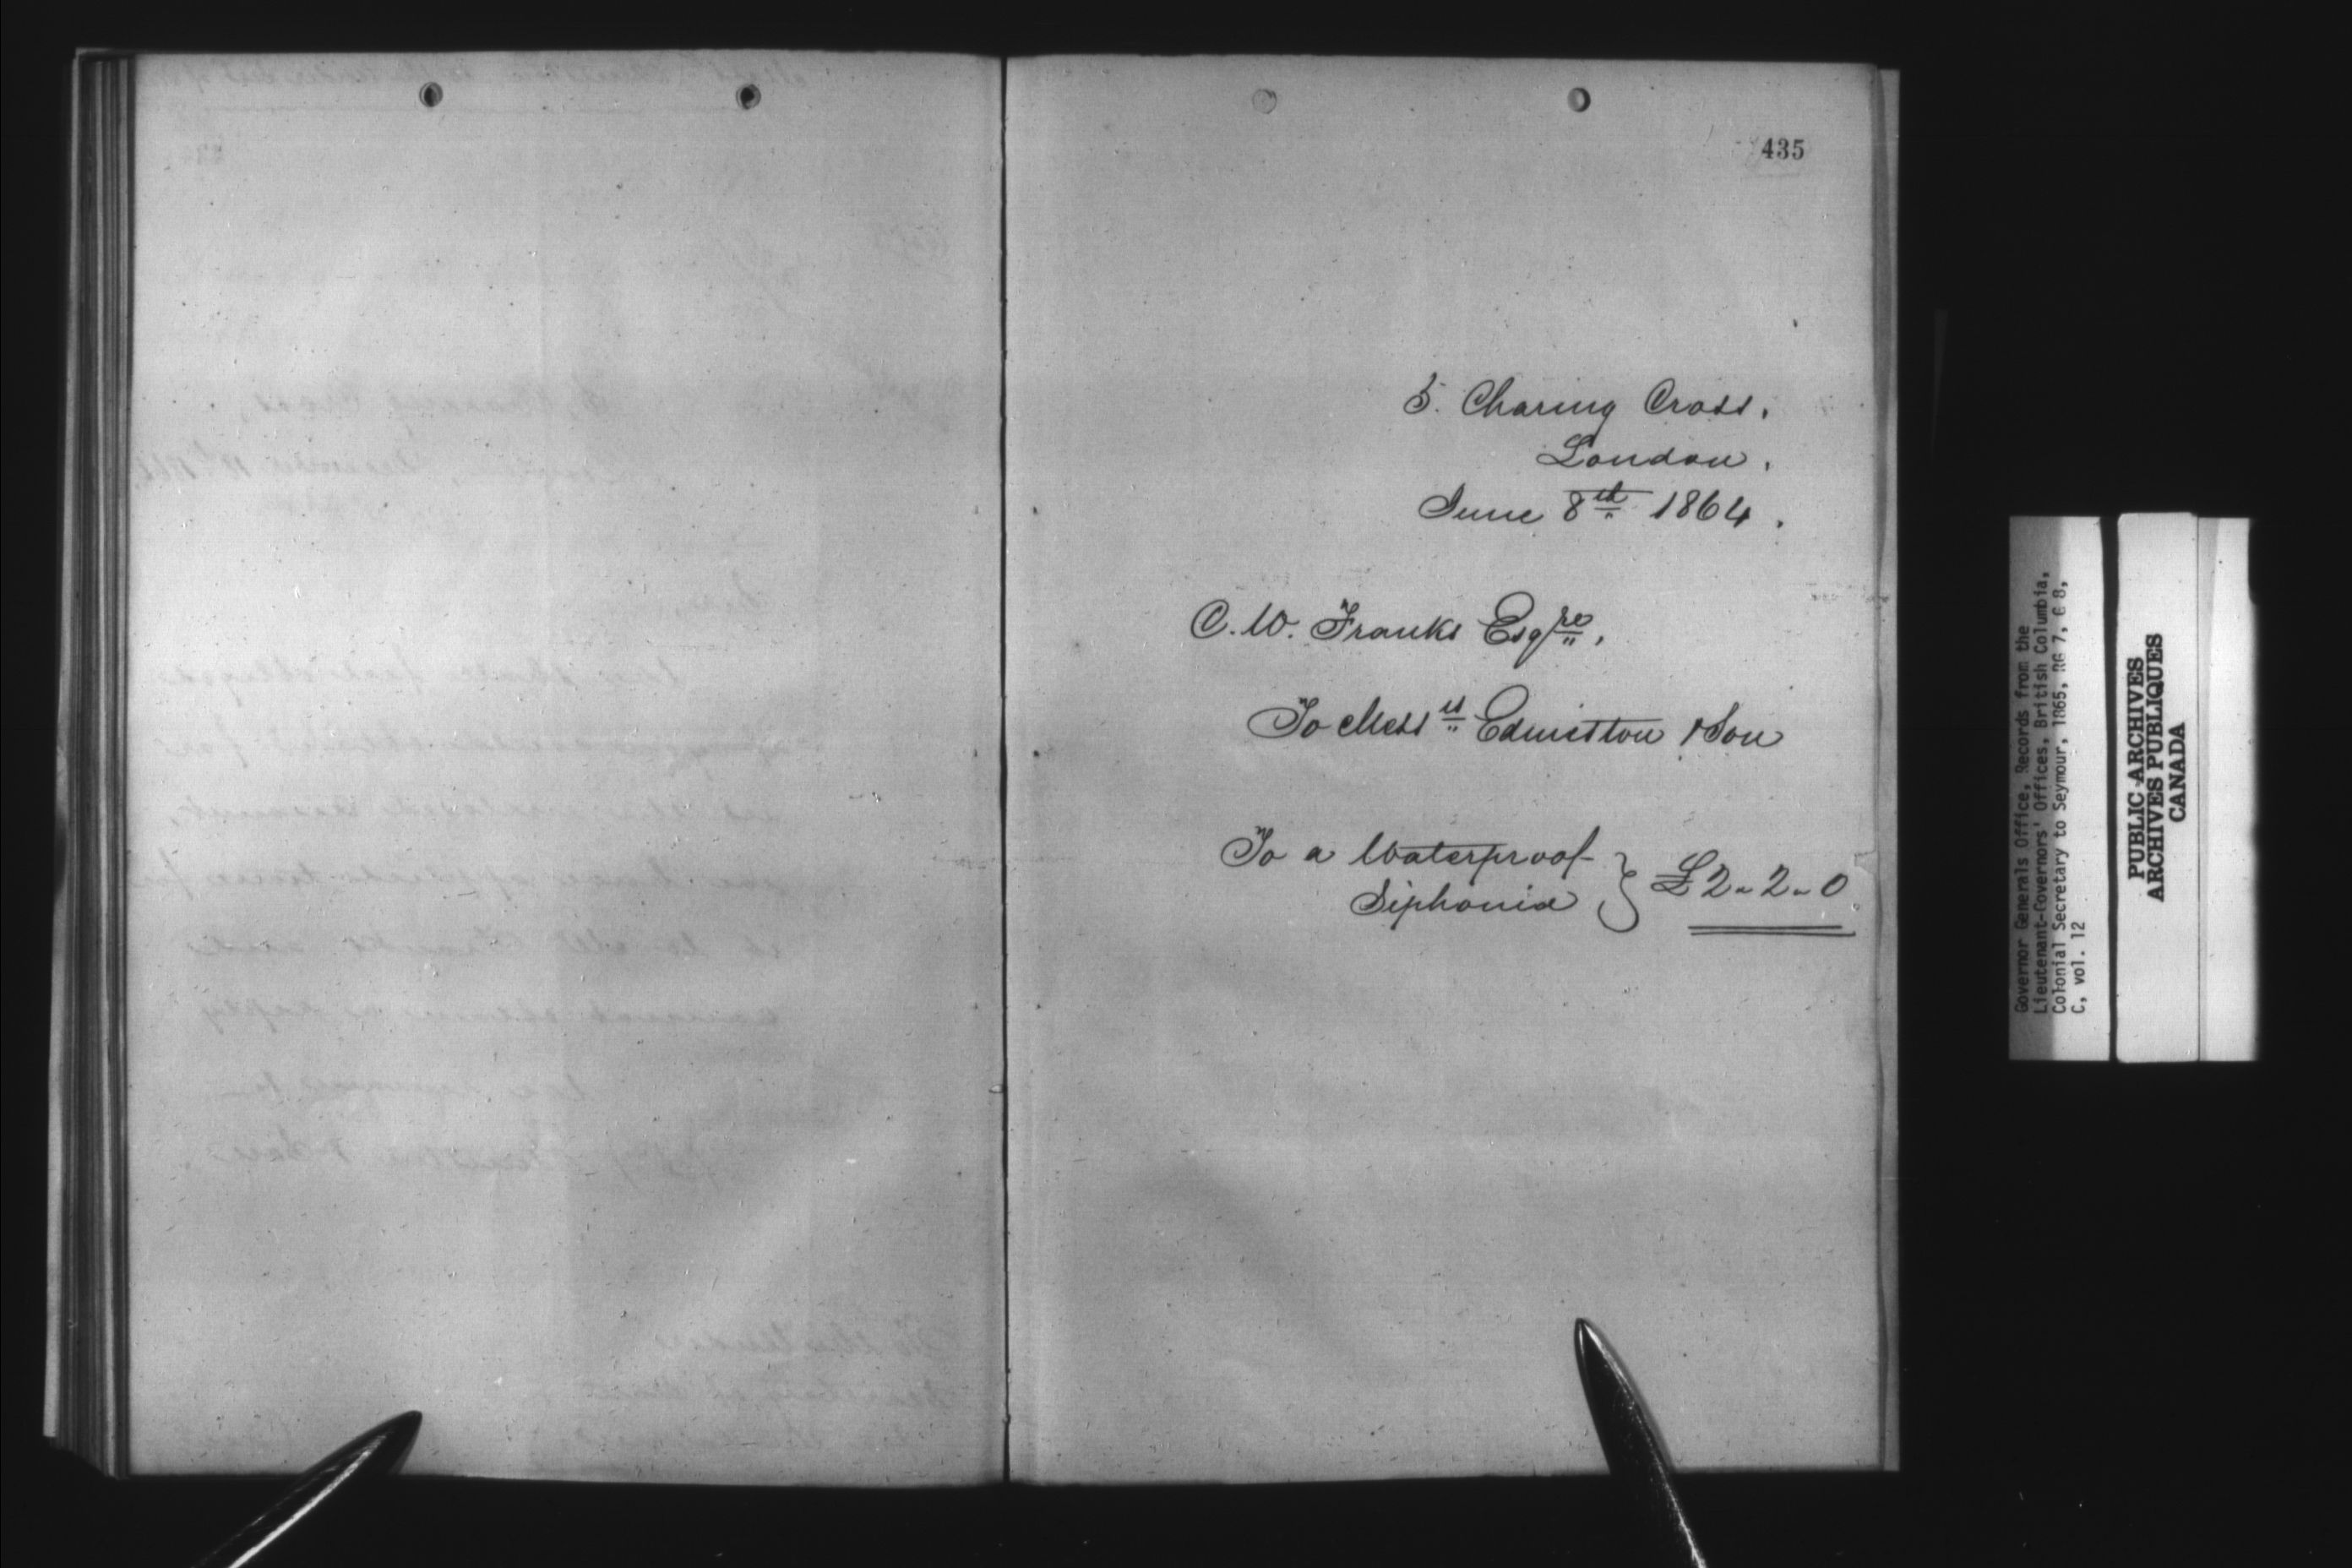 435
5. Charing Cross.
London.
June 8th 1864.
C. W. Franks Esqre.
To Messrs Edmiston & Son
To a Waterproof
Siphonia } £2-2-0
Governor Generals Office, Records from the
Lieutenant-Governors' Offices, British Columbia,
Colonial Secretary to Seymour, 1865, RG 7, G 8,
C, vol. 12
PUBLIC ARCHIVES
ARCHIVES PUBLIQUES
CANADA